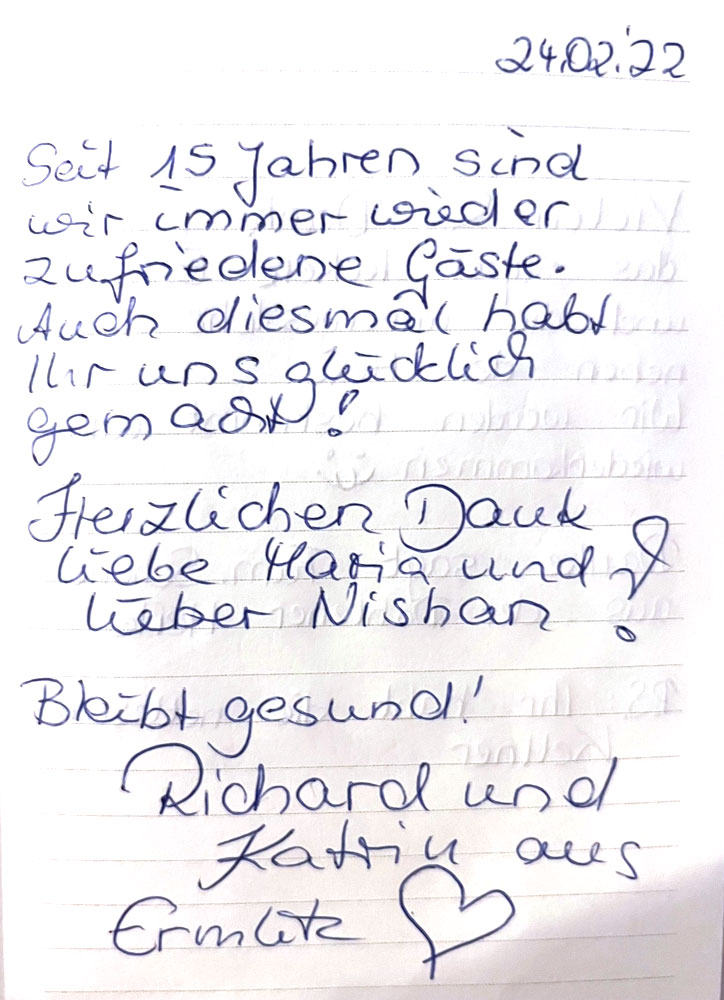 24.02.'22
Seit 15 Jahren sind
wir immer wieder
zufriedene Gäste.
Auch diesmal habt
Ihr uns glücklich
gemacht!
Herzlichen Dank
liebe Maria und
lieber Nishan!
Bleibt gesund!
Richard und
Katrin aus
Ermlitz